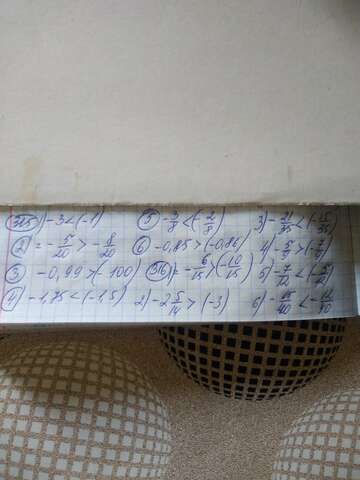 315) -3 < (-1) 5) -3/8 < (-2/8) 3) -21/35 < (-15/35)
2) = -5/20 > -8/20 6) -0,85 > (-0,86) 4) -5/9 > (-7/9)
3) -0,99 > (-100) 316) = -6/15 > (-10/15) 5) -7/12 < (-5/12)
4) -1,75 < (-1,5) 2) -2 5/14 > (-3) 6)